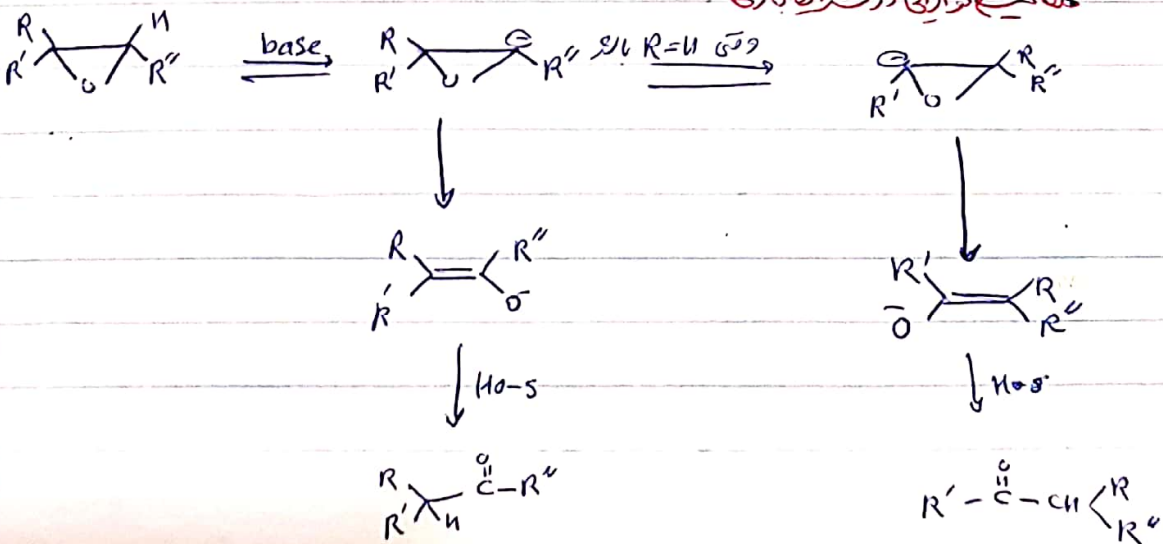 R H
R' O R''
base
R ⊖
R' O R''
وقتی R=H باشد
⊖ R
R' O R''
R R''
R' O⁻
R' R
⁻O R''
HO-S
HO-S
R O
R' H C-R''
O
R' - C - CH R
R''